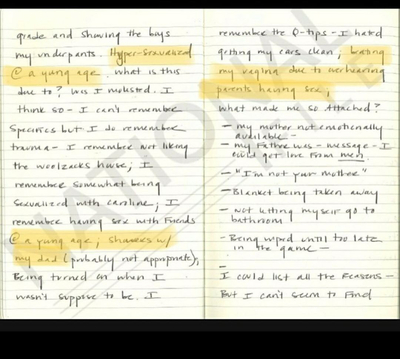 grade and showing the boys
my underpants. Hyper-sexualized
@ a young age. What is this
due to? Was I molested. I
think so - I can't remember
specifics but I do remember
trauma - I remember not liking
the woolzacks house; I
remember somewhat being
sexualized with caroline; I
remember having sex with friends
@ a young age; showers w/
my dad (probably not appropriate);
Being turned on when I
wasn't suppose to be. I
remember the Q-tips - I hated
getting my ears clean;
my vagina due to overhearing
parents having sex;
What made me so attached?
- my mother not emotionally
available -
- my Father was - message - I
could get love from men.
- "I'm not your mother"
- Blanket being taken away
- Not letting myself go to
bathroom
- Being wiped until too late
in the game -
-
I could list all the reasons -
But I can't seem to find
NATIONAL FILE